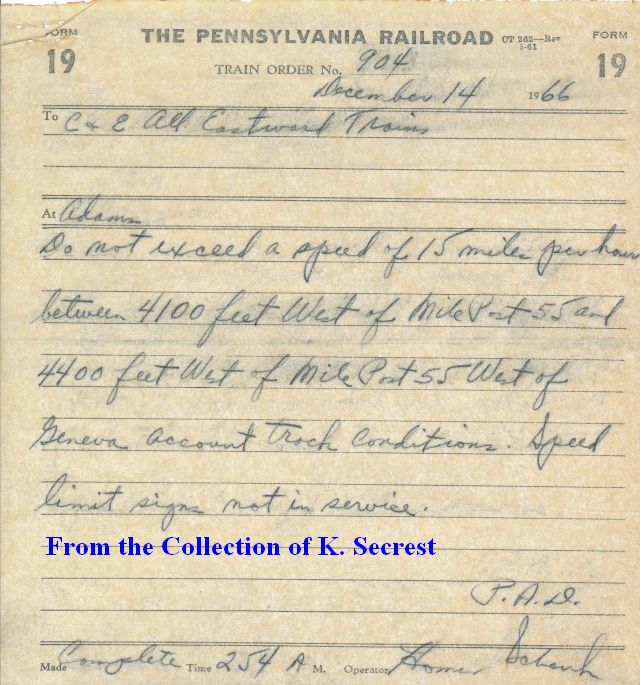 FORM 19 THE PENNSYLVANIA RAILROAD CT 262—Rev 5-61 FORM 19
TRAIN ORDER No. 904
December 14 1966
To C & E All Eastward Trains
At Adams
Do not exceed a speed of 15 miles per hour
between 4100 feet West of Mile Post 55 and
4400 feet West of Mile Post 55 West of
Geneva account track conditions. Speed
limit signs not in service.
From the Collection of K. Secrest
P.A.D.
Made Complete Time 254 A M. Operator Homer Schenk